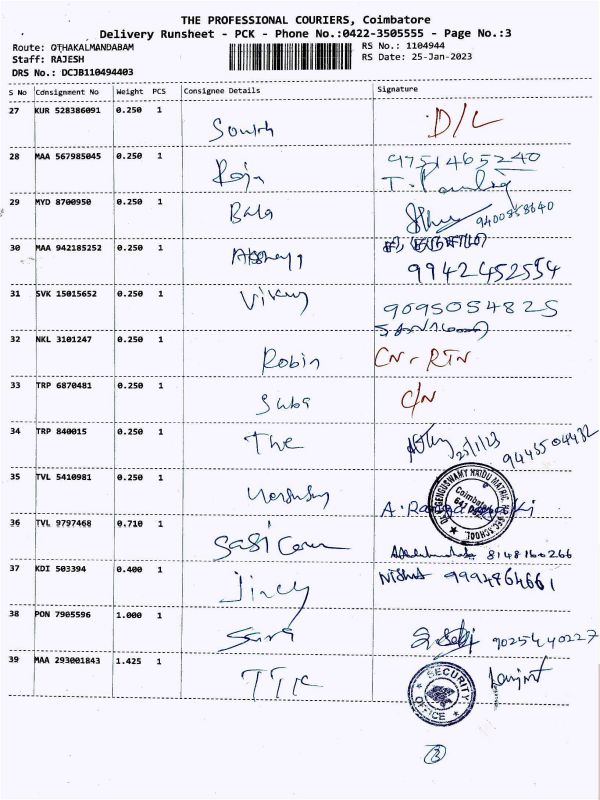 THE PROFESSIONAL COURIERS, Coimbatore
Delivery Runsheet - PCK - Phone No.:0422-3505555 - Page No.:3
Route: OTHAKALMANDABAM RS No.: 1104944
Staff: RAJESH RS Date: 25-Jan-2023
DRS No.: DCJB110494403
S No Consignment No Weight PCS Consignee Details Signature
27 KUR 528386091 0.250 1
South D/L
28 MAA 567985045 0.250 1 9751465240
Raja
29 MYD 8700950 0.250 1
Bala 9400858640
30 MAA 942185252 0.250 1
9942452554
31 SVK 15015652 0.250 1
9095054825
32 NKL 3101247 0.250 1
Robin CN-RTN
33 TRP 6870481 0.250 1
Suba C/N
34 TRP 840015 0.250 1
The 25/1/23 9445504432
35 TVL 5410981 0.250 1
36 TVL 9797468 0.710 1
8148160266
37 KDI 503394 0.400 1
Jincy 9994864661
38 PON 7905596 1.000 1
Sara 9025440227
39 MAA 293001843 1.425 1
TTK SECURITY OFFICE